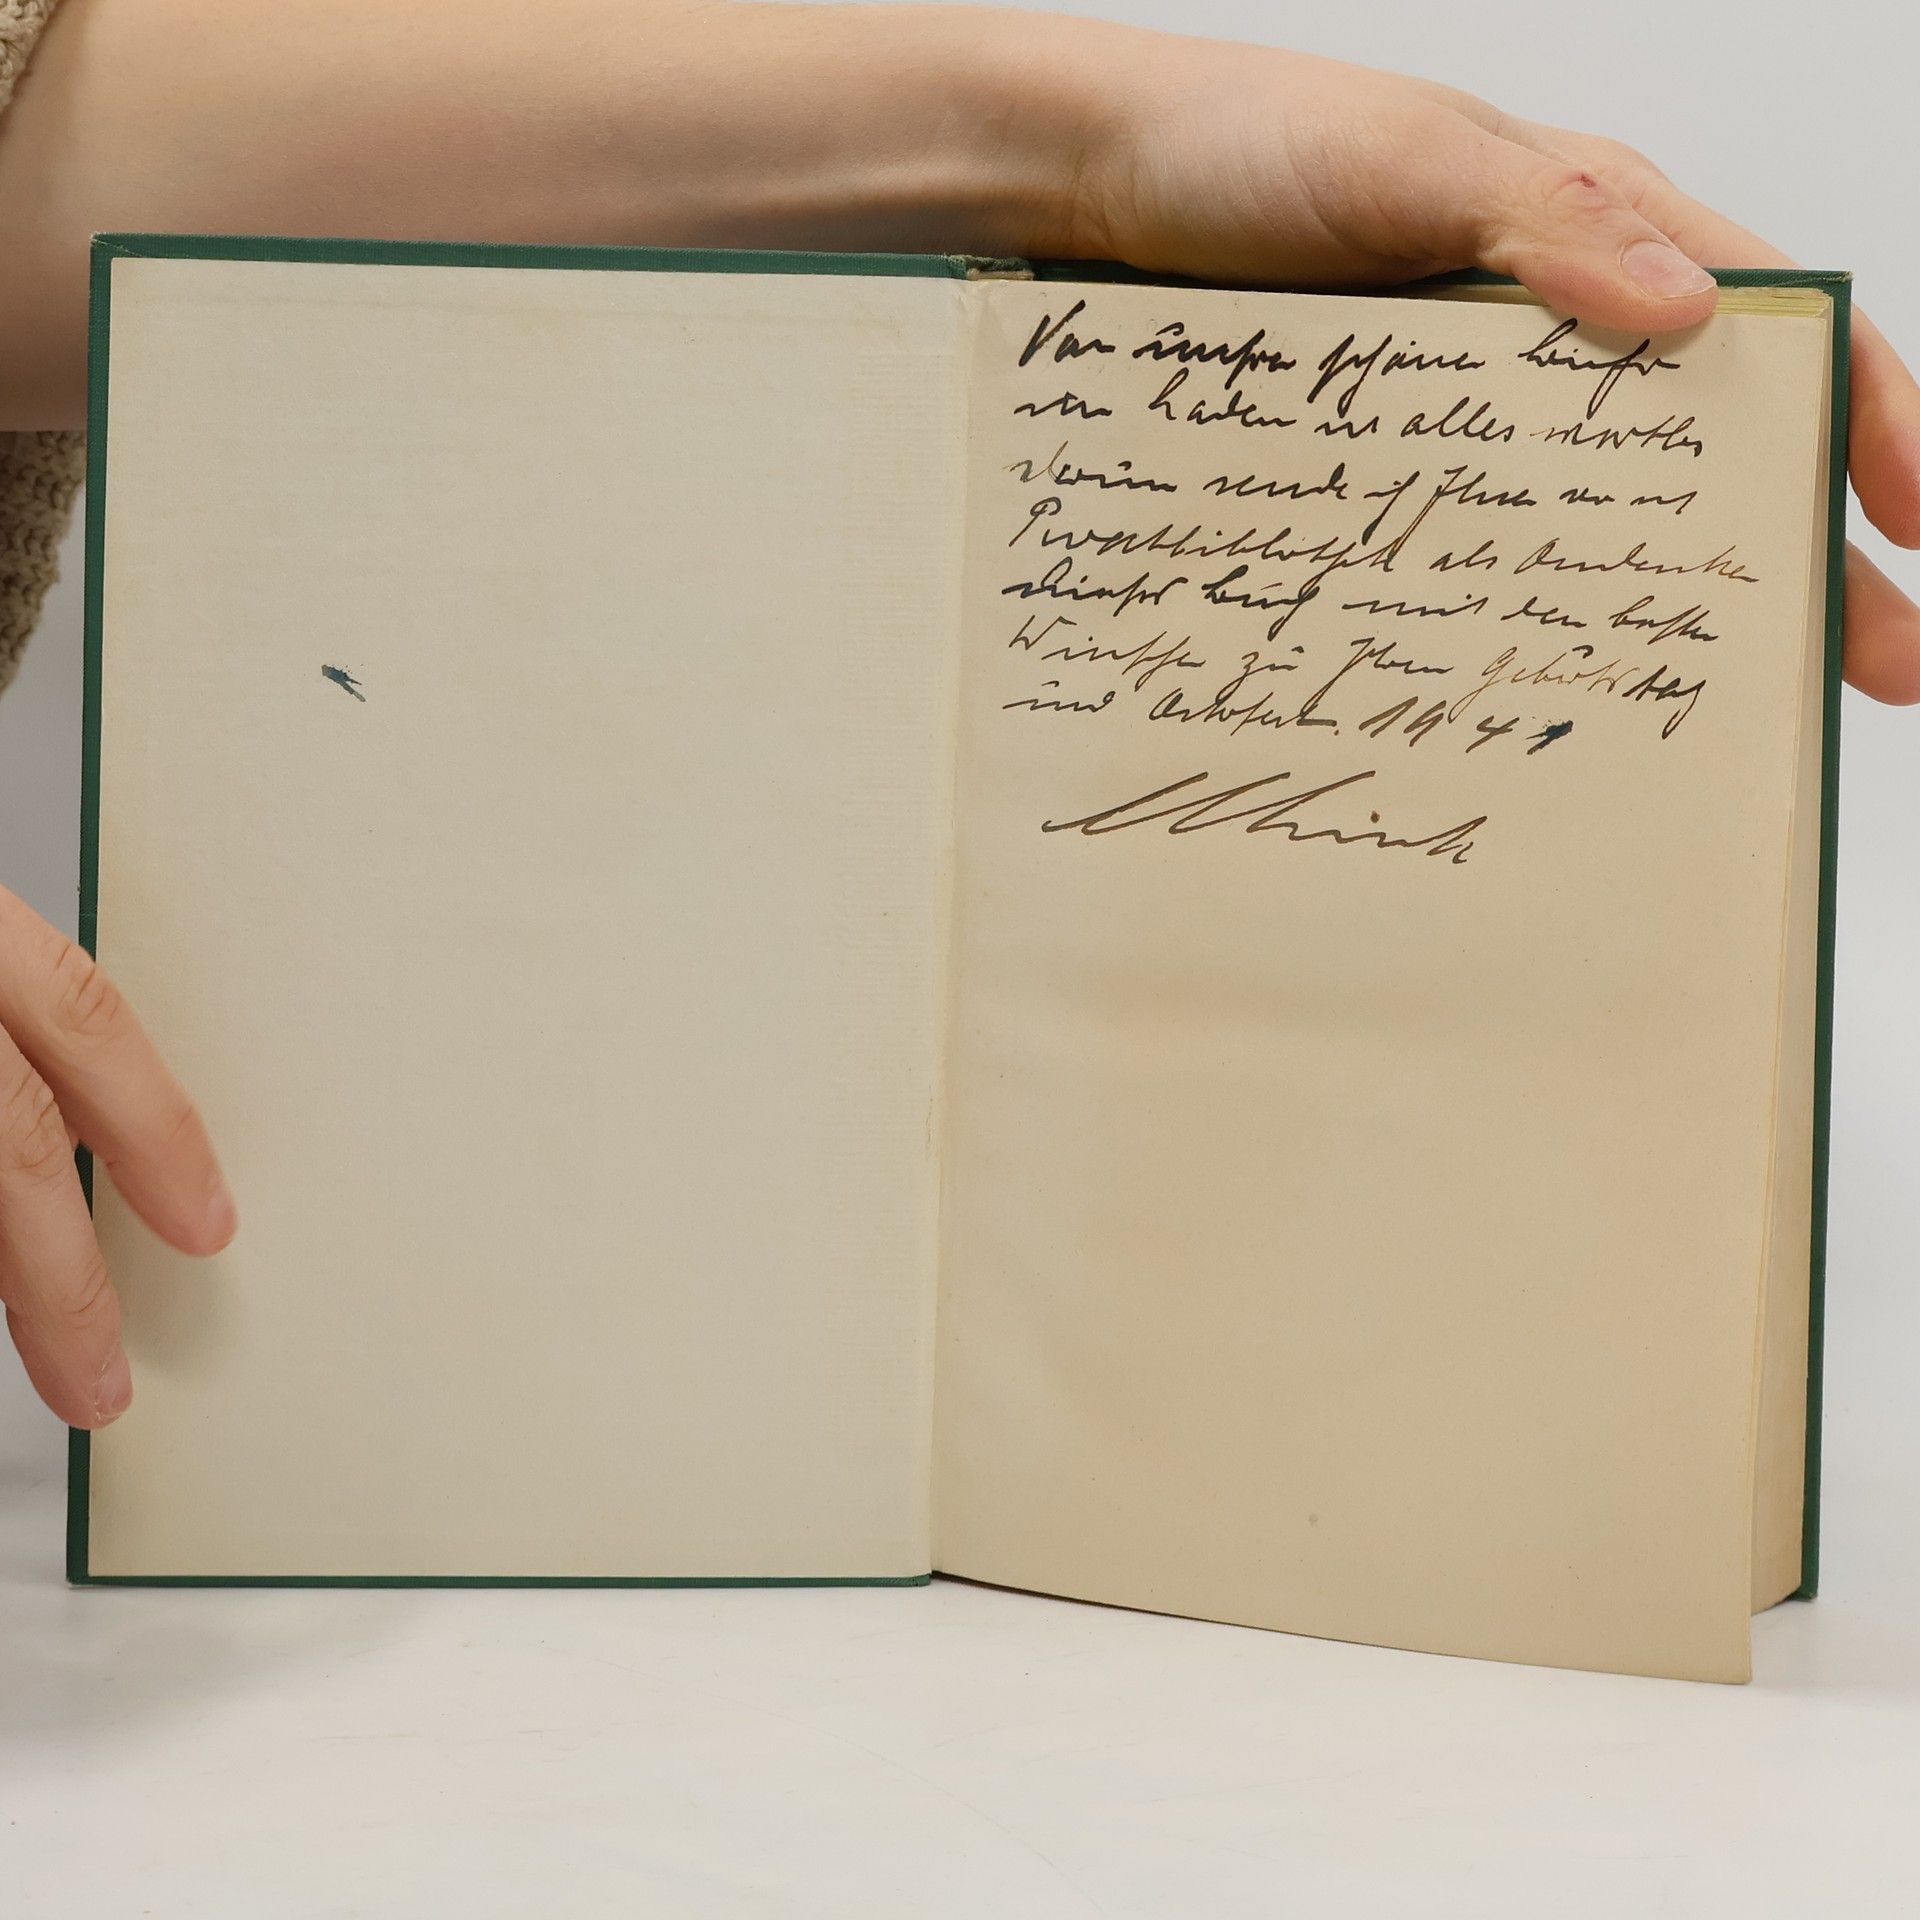 Von unsren schönen
im Laden ist alles wertlos
darum sende ich Ihnen
Privatbibliothek als Andenken
dieses Buch mit den besten
Wünschen zu Ihrem Geburtstag
und Osterfest. 1941